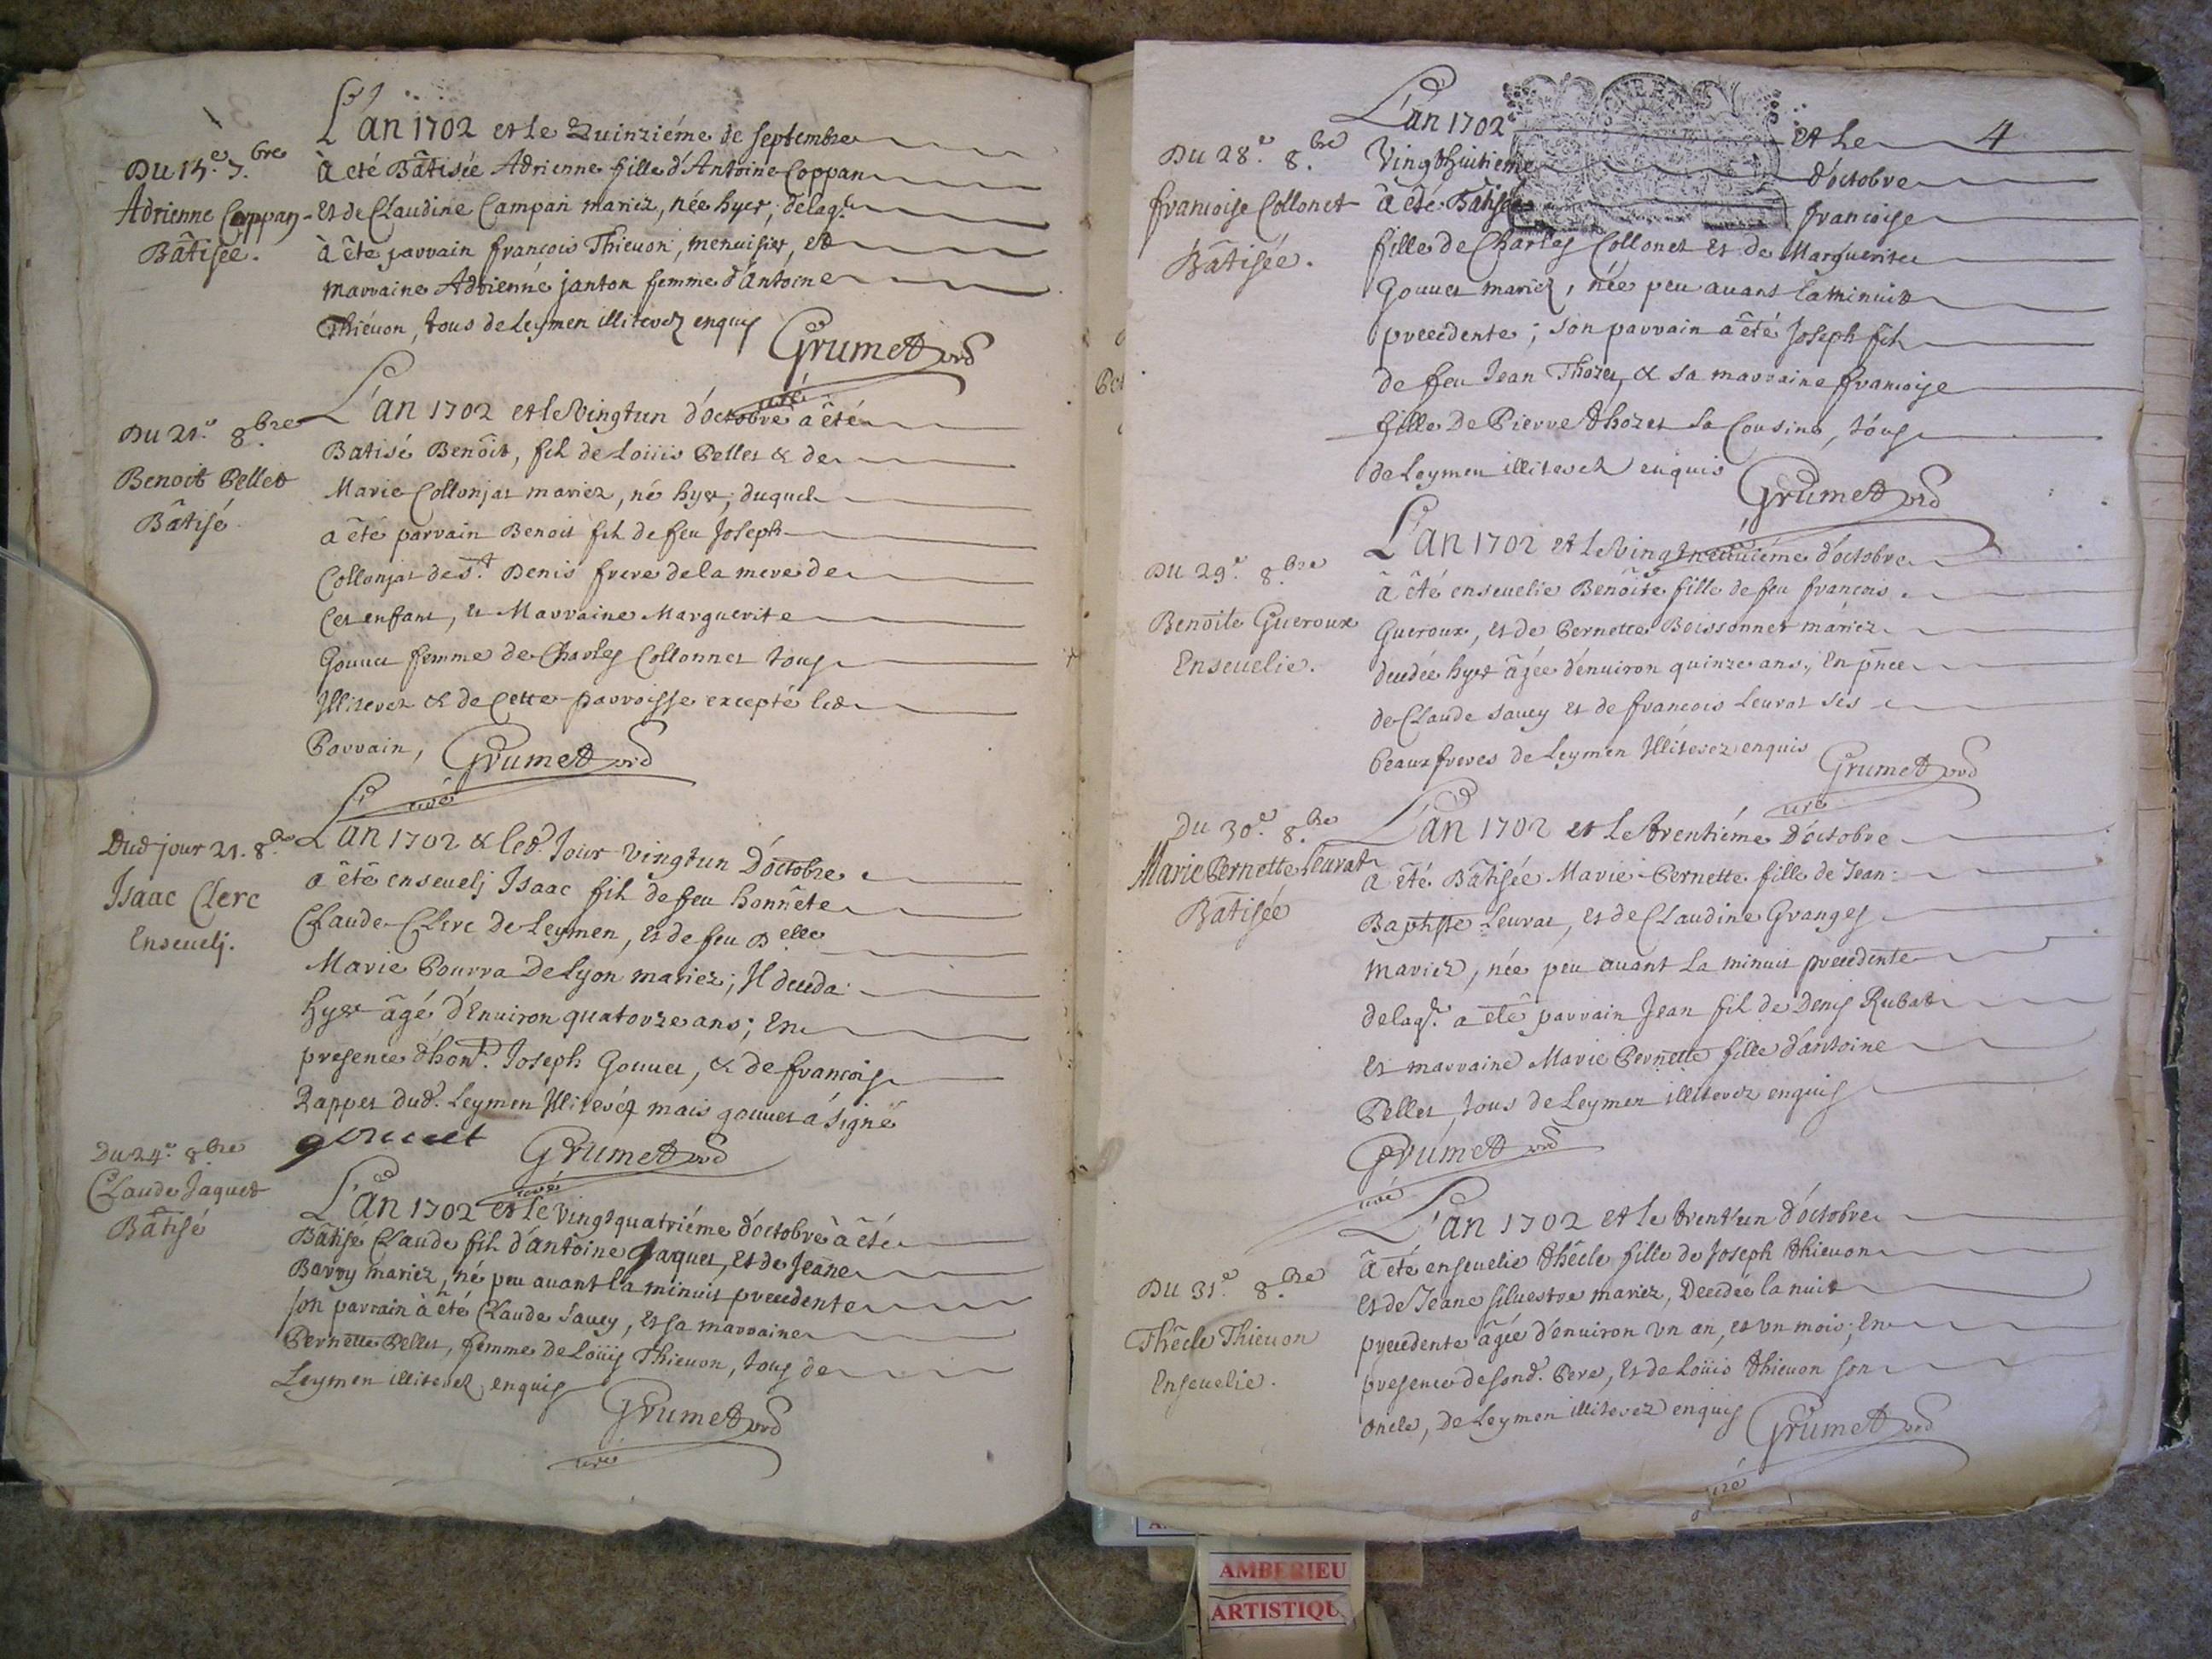 Du 15.e 7.bre
Adrienne Coppan
Bâtisée.
L'an 1702 et le Quinziéme de septembre
à eté Bâtisée Adrienne fille d'Antoine Coppan
Et de Claudine Campan mariez, née hyer, delaq.le
à ête parrain françois Thieuon, menuisier, et
marraine Adrienne janton femme d'Antoine
Thiéuon, tous de Leymen illiterez enquis
Grumet
curé
Du 21.e 8.bre
Benoit Pellet
Bâtisé
L'an 1702 et le Vingtun d'octobre a êté
Batisé Benôit, fils de Loüis Pellet & de
Marie Collonjat mariez, né hyer, duquel
a êté parrain Benoit fils de feu Joseph
Collonjat de S.t Denis frere de la mere de
Cet enfant, et Marraine Marguerite
Gouuet femme de Charles Collonnet tous
Illiterez & de Cette parroisse excepté led
Parrain, Grumet
curé
Dud jour 21. 8.bre
Isaac Clerc
Enseuelj.
L'an 1702 & led. Jour vingtun D'octobre
a êté enseuelj Isaac fils de feu honnête
Claude Clerc de Leymen, et de feu Delle
Marie Pourra de Lyon mariez; Il deceda
hyer âgé d'Enuiron quatorze ans; En
presence d'hon.t Joseph Gouuet, & de françois
Rappet dud. Leymen Illiterez mais gouuet a signé
gouuet Grumet
curé
Du 24.e 8bre
Claude Jaquet
Bâtisé
L'an 1702 et le vingtquatriéme d'octobre à êté
Bâtisé Claude fils d'antoine Jaquet, et de Jeane
Barry mariez, né peu auant la minuit precedente
son parrain à êté Claude Sauey, et sa marraine
Pernette Pellet, femme de Loüis Thieuon, tous de
Leymen illiterez enquis
Grumet
curé
4
Du 28.e 8.bre
francoise Collonet
Bâtisée.
L'an 1702 et le
Vingthuitieme d'octobre
à êté Batisée francoise
fille de Charles Collonet et de Marguerite
Gouuet mariez, née peu auant la minuit
precedente; son parrain a êté Joseph fils
de feu Jean Thozet, & sa marraine francoise
fille de Pierre thozet sa Cousine, tous
de Leymen illiterez enquis
Grumet
Du 29.e 8.bre
Benoîte Gueroux
Enseuelie.
L'an 1702 et le Vingtneuuiéme d'octobre
â êté enseuelie Benôite fille de feu francois
Gueroux, et de Pernette Boissonnet mariez
decedée hyer âgée d'enuiron quinze ans, En pnce
de Claude Sauey et de francois Leurat ses
beaux freres de Leymen Illiterez enquis
Grumet
curé
Du 30.e 8.bre
Marie Pernette Leurat
Bâtisée
L'an 1702 et le trentiéme D'octobre
a êté Bâtisée Marie Pernette fille de Jean
Baptiste Leurat, et de Claudine Granges
mariez, née peu auant la minuit precedente
delaq.le a êté parrain Jean fils de Denis Rubat
Et marraine Marie Pernette fille d'antoine
Pellet tous de Leymen illiterez enquis
Grumet
curé
Du 31.e 8.bre
Thêcle Thieuon
Enseuelie.
L'an 1702 et le trent'un d'octobre
â êté enseuelie thêcle fille de Joseph thieuon
et de Jeane Siluestre mariez, Decedée la nuit
precedente âgée d'enuiron vn an, et vn mois; En
presence de sond. Pere, et de Loüis thieuon son
oncle, de Leymen illiterez enquis
Grumet
curé
AMBERIEU
ARTISTIQU